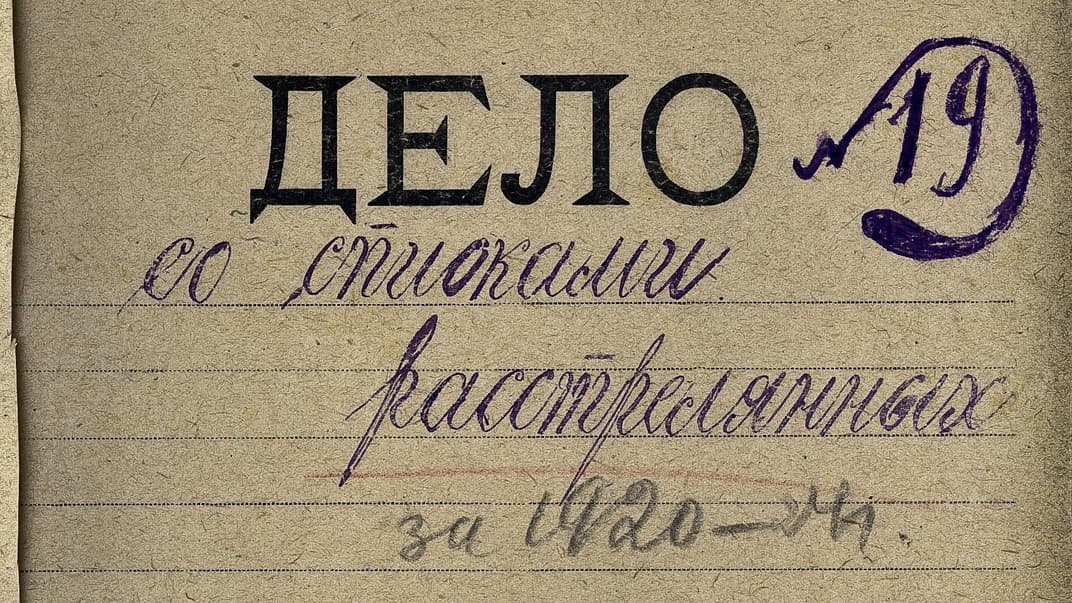 ДЕЛО № 19
со списками
расстрелянных
за 1920–24г.